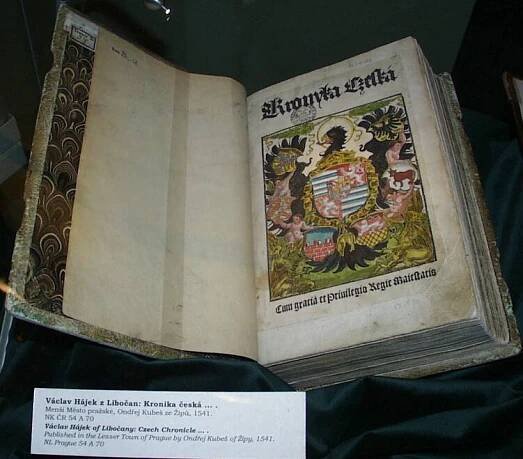 Kronyka Czeská
Cum gratia et Privilegio Regie Maiestatis
Václav Hájek z Libočan: Kronika česká ... .
Menší Město pražské, Ondřej Kubeš ze Žípů, 1541.
NK ČR 54 A 70
Václav Hájek of Libočany: Czech Chronicle ... .
Published in the Lesser Town of Prague by Ondřej Kubeš of Žípy, 1541.
NL Prague 54 A 70